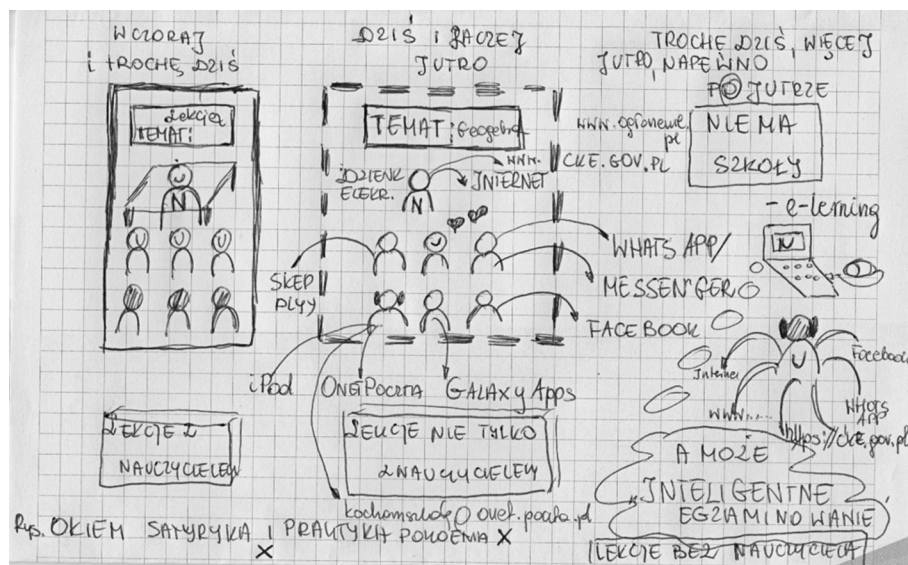 WCZORAJ
i TROCHĘ DZIŚ
Lekcja
TEMAT:
N
LEKCJE Z
NAUCZYCIELEM
DZIŚ i RACZEJ
JUTRO
TEMAT: Geogebra
DZIENK
ELEKR.
WWW.
INTERNET
N
SKLEP
PLAY
WHATS APP/
MESSENGER
FACEBOOK
iPod
ONET POCZTA
GALAXY Apps
LEKCJE NIE TYLKO
Z NAUCZYCIELEM
kochamszkołę@onet.poczta.pl
TROCHĘ DZIŚ, WIĘCEJ
JUTRO, NAPEWNO
POJUTRZE
www.
pl
CKE.GOV.PL
NIE MA
SZKOŁY
- e-lerning
N
Internet
Facebook
www.....
WHATS
APP
https://cke.gov.pl
A MOŻE
INTELIGENTNE
EGZAMINOWANIE
LEKCJE BEZ NAUCZYCIELA
Rys. OKIEM SATYRYKA I PRAKTYKA POKOLENIA X
X